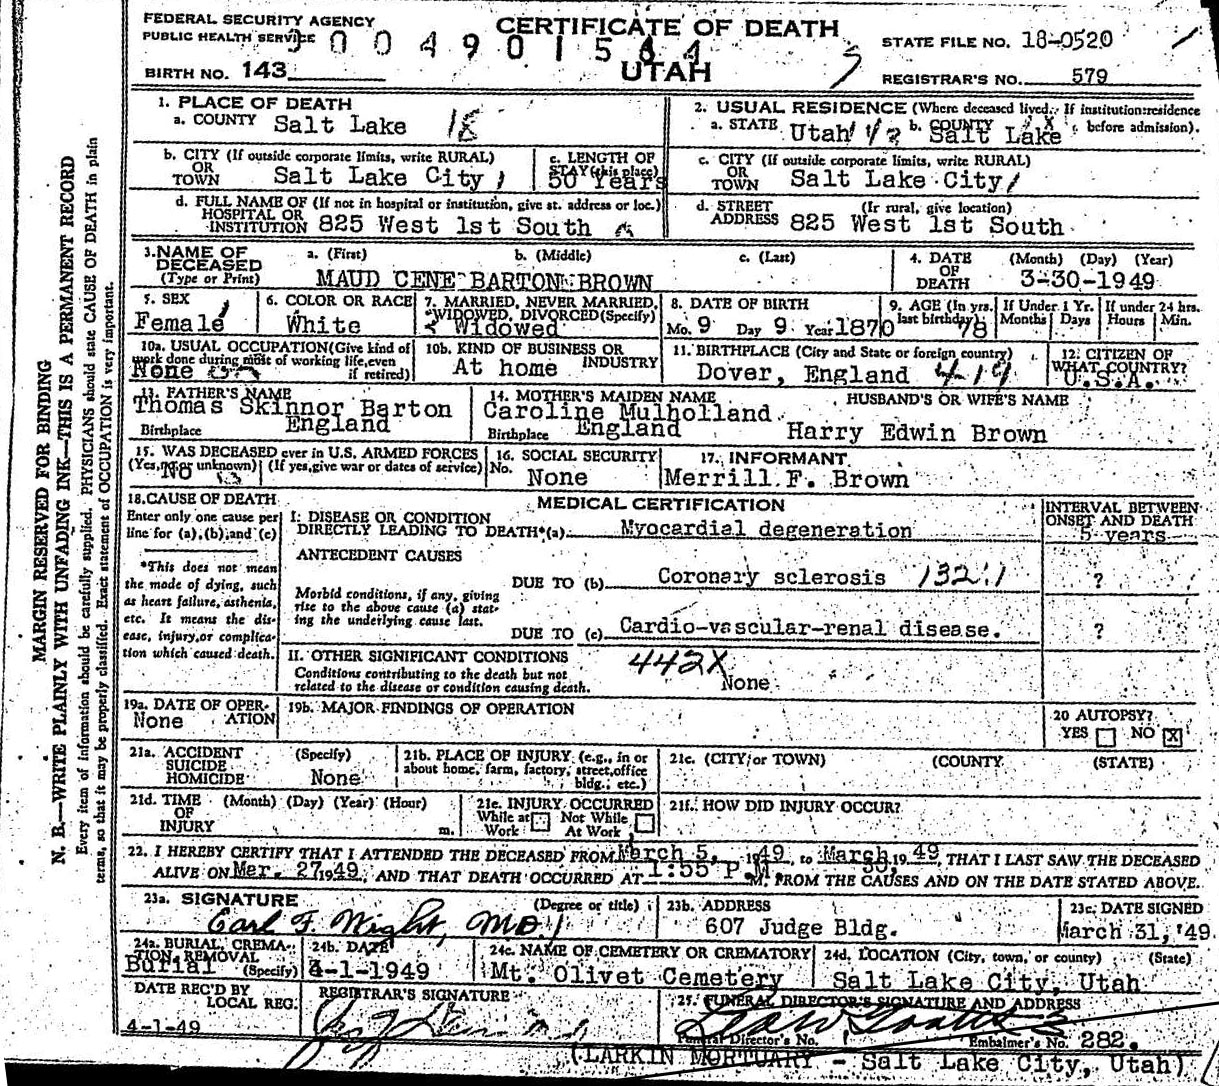 FEDERAL SECURITY AGENCY
PUBLIC HEALTH SERVICE
CERTIFICATE OF DEATH
UTAH
STATE FILE NO. 18-0520
BIRTH NO. 143
REGISTRAR'S NO. 579
1. PLACE OF DEATH
a. COUNTY Salt Lake 18
2. USUAL RESIDENCE (Where deceased lived. If institution: residence before admission).
a. STATE Utah b. COUNTY Salt Lake
b. CITY (If outside corporate limits, write RURAL) OR TOWN Salt Lake City
c. LENGTH OF STAY (this place) 50 Years
c. CITY (If outside corporate limits, write RURAL) OR TOWN Salt Lake City
d. FULL NAME OF (If not in hospital or institution, give st. address or loc.) HOSPITAL OR INSTITUTION 825 West 1st South
d. STREET ADDRESS (If rural, give location) 825 West 1st South
3. NAME OF DECEASED (Type or Print) a. (First) b. (Middle) c. (Last)
MAUD CENE BARTON BROWN
4. DATE OF DEATH (Month) (Day) (Year)
3-30-1949
5. SEX Female
6. COLOR OR RACE White
7. MARRIED, NEVER MARRIED, WIDOWED, DIVORCED (Specify) Widowed
8. DATE OF BIRTH Mo. 9 Day 9 Year 1870
9. AGE (In yrs. last birthday) 78
If Under 1 Yr. Months Days
If under 24 hrs. Hours Min.
10a. USUAL OCCUPATION (Give kind of work done during most of working life, even if retired) None
10b. KIND OF BUSINESS OR INDUSTRY At home
11. BIRTHPLACE (City and State or foreign country) Dover, England
12. CITIZEN OF WHAT COUNTRY? U.S.A.
13. FATHER'S NAME
Thomas Skinnor Barton
Birthplace England
14. MOTHER'S MAIDEN NAME
Caroline Mulholland
Birthplace England
HUSBAND'S OR WIFE'S NAME
Harry Edwin Brown
15. WAS DECEASED ever in U.S. ARMED FORCES
(Yes, no, or unknown) (If yes, give war or dates of service)
No
16. SOCIAL SECURITY No. None
17. INFORMANT
Merrill F. Brown
18. CAUSE OF DEATH
Enter only one cause per line for (a), (b), and (c)
*This does not mean the mode of dying, such as heart failure, asthenia, etc. It means the disease, injury, or complication which caused death.
MEDICAL CERTIFICATION
INTERVAL BETWEEN ONSET AND DEATH
I. DISEASE OR CONDITION DIRECTLY LEADING TO DEATH*(a) Myocardial degeneration
5 years
ANTECEDENT CAUSES
DUE TO (b) Coronary sclerosis
?
Morbid conditions, if any, giving rise to the above cause (a) stating the underlying cause last.
DUE TO (c) Cardio-vascular-renal disease.
?
II. OTHER SIGNIFICANT CONDITIONS
442X
Conditions contributing to the death but not related to the disease or condition causing death.
None
19a. DATE OF OPERATION None
19b. MAJOR FINDINGS OF OPERATION
20 AUTOPSY?
YES NO X
21a. ACCIDENT SUICIDE HOMICIDE (Specify) None
21b. PLACE OF INJURY (e.g., in or about home, farm, factory, street, office bldg., etc.)
21c. (CITY or TOWN) (COUNTY) (STATE)
21d. TIME OF INJURY (Month) (Day) (Year) (Hour) m.
21e. INJURY OCCURRED
While at Work Not While At Work
21f. HOW DID INJURY OCCUR?
22. I HEREBY CERTIFY THAT I ATTENDED THE DECEASED FROM March 5, 1949, to March 30, 1949, THAT I LAST SAW THE DECEASED
ALIVE ON Mar. 27 1949, AND THAT DEATH OCCURRED AT 1:55 P.M. M. FROM THE CAUSES AND ON THE DATE STATED ABOVE.
23a. SIGNATURE (Degree or title)
Earl F. Wight, MD
23b. ADDRESS
607 Judge Bldg.
23c. DATE SIGNED
March 31, '49
24a. BURIAL, CREMATION, REMOVAL (Specify) Burial
24b. DATE
4-1-1949
24c. NAME OF CEMETERY OR CREMATORY
Mt. Olivet Cemetery
24d. LOCATION (City, town, or county) (State)
Salt Lake City, Utah
DATE REC'D BY LOCAL REG.
4-1-49
REGISTRAR'S SIGNATURE
25. FUNERAL DIRECTOR'S SIGNATURE AND ADDRESS
Funeral Director's No. Embalmer's No. 282.
(LARKIN MORTUARY - Salt Lake City, Utah)
MARGIN RESERVED FOR BINDING
N. B.—WRITE PLAINLY WITH UNFADING INK—THIS IS A PERMANENT RECORD
Every item of information should be carefully supplied. PHYSICIANS should state CAUSE OF DEATH in plain
terms, so that it may be properly classified. Exact statement of OCCUPATION is very important.